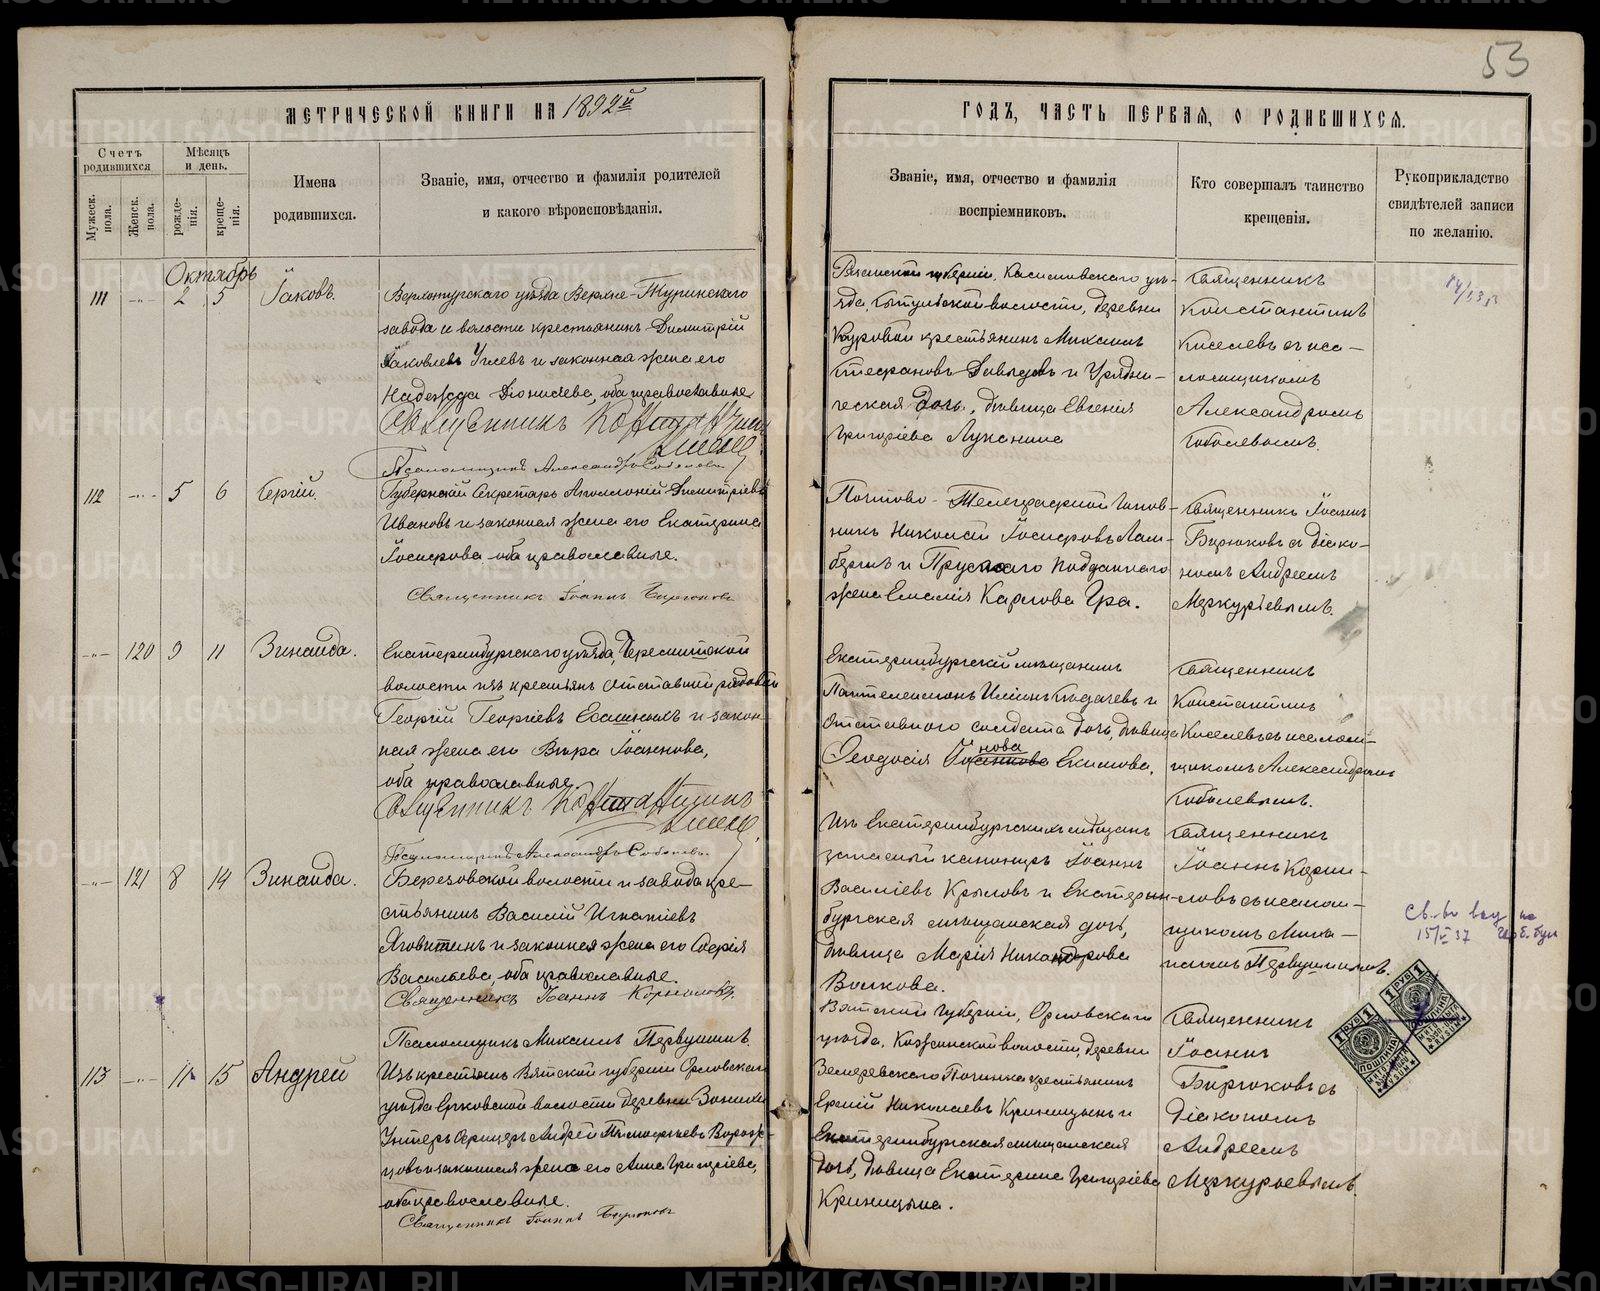 53
МЕТРИЧЕСКОЙ КНИГИ НА 1892й
ГОДЪ, ЧАСТЬ ПЕРВАЯ, О РОДИВШИХСЯ.
Счетъ родившихся
Мѣсяцъ и день.
Мужеск. пола.
Женск. пола.
рожде-нія.
креще-нія.
Имена
родившихся.
Званіе, имя, отчество и фамилія родителей
и какого вѣроисповѣданія.
Званіе, имя, отчество и фамилія
воспріемниковъ.
Кто совершалъ таинство
крещенія.
Рукоприкладство
свидѣтелей записи
по желанію.
Октябрь
111 -"- 2 5 Іаковъ.
Верхотурскаго уѣзда Верхне-Туринскаго
завода и волости крестьянинъ Димитрій
Іаковлевъ Углевъ и законная жена его
Надежда Діонисіева, оба православные.
Священникъ Константинъ
Киселевъ
Псаломщикъ Александръ Соболевъ
Рязанской губерніи, Касимовскаго уѣ-
зда, волости, деревни
крестьянинъ Михаилъ
Стефановъ Давыдовъ и Урядни-
ческая дочь, дѣвица Евгенія
Григоріева Луканина
Священникъ
Константинъ
Киселевъ съ пса-
ломщикомъ
Александромъ
Соболевымъ.
112 -"- 5 6 Сергій.
Губернскій Секретарь Аполлоній Димитріевъ
Ивановъ и законная жена его Екатерина
Іосифова оба православные.
Священникъ Іоаннъ Бирюковъ
Почтово-Телеграфной чинов-
никъ Николай Іосифовъ Лам-
бергъ и Прусскаго подданнаго
жена Емилія Карлова Гра.
Священникъ Іоаннъ
Бирюковъ съ діако-
номъ Андреемъ
Меркурьевымъ.
-"- 120 9 11 Зинаида.
Екатеринбургскаго уѣзда,
волости изъ крестьянъ отставной рядовой
Георгій Георгіевъ и закон-
ная жена его Вѣра Іоаннова,
оба православные.
Священникъ Константинъ
Киселевъ
Псаломщикъ Александръ Соболевъ.
Екатеринбургскій мѣщанинъ
Пантелеимонъ и
отставного солдата дочь, дѣвица
Ѳеодосія нова Екимова,
Священникъ
Константинъ
Киселевъ съ псалом-
щикомъ Александромъ
Соболевымъ.
-"- 121 8 14 Зинаида.
Березовской волости и завода кре-
стьянинъ Василій Игнатіевъ
Яговитинъ и законная жена его Софія
Васильева, оба православные.
Священникъ Іоаннъ Корниловъ.
Псаломщикъ Михаилъ Первушинъ.
Изъ Екатеринбургскихъ мѣщанъ
запасный канониръ Іоаннъ
Василіевъ Крыловъ и Екатерин-
бургская мѣщанская дочь,
дѣвица Марія Никандрова
Волкова.
Священникъ
Іоаннъ Корни-
ловъ съ псалом-
щикомъ Миха-
иломъ Первушинымъ.
113 -"- 11 15 Андрей
Изъ крестьянъ Вятской губерніи Орловскаго
уѣзда волости деревни
Унтеръ Офицеръ Андрей Тимофеевъ
и законная жена его Анна Григоріева,
оба православные.
Священникъ Іоаннъ Бирюковъ
Вятской губерніи, Орловскаго
уѣзда, волости, деревни
Починка крестьянинъ
Николаевъ Криницынъ и
Екатеринбургская мѣщанская
дочь, дѣвица Екатерина Григоріева
Криницына.
Священникъ
Іоаннъ
Бирюковъ съ
діакономъ
Андреемъ
Меркурьевымъ.
1 РУБ 1
ПОШЛИНА
1 РУБ 1
ПОШЛИНА
METRIKI.GASO-URAL.RU